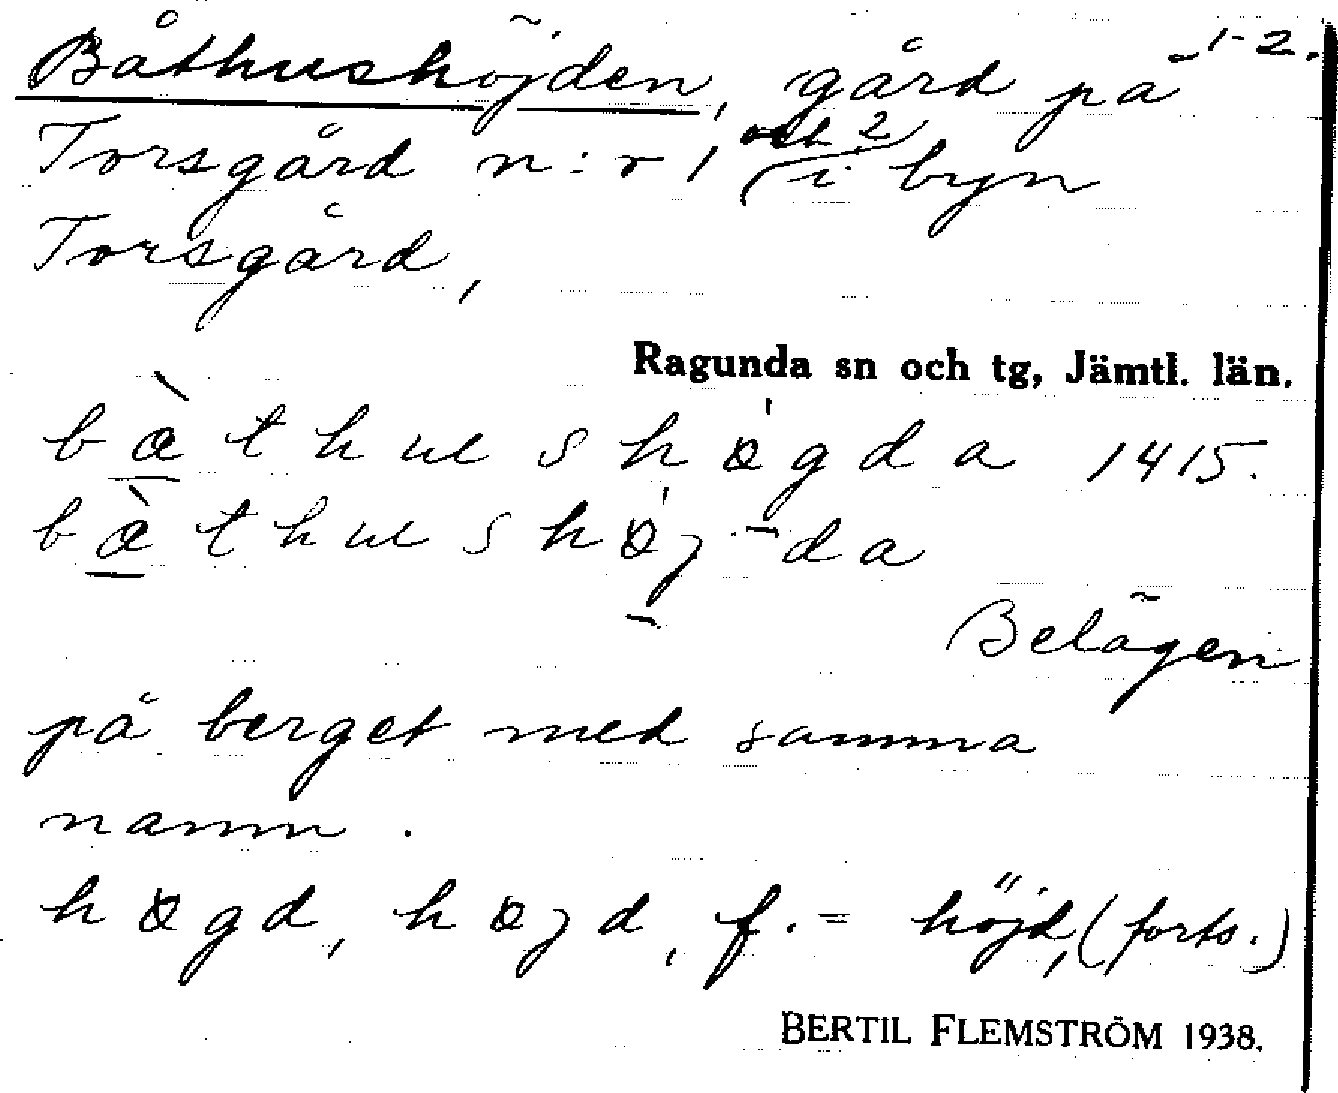 Båthushöjden, gård på 1-2.
Torsgård n:r 1 och 2 i byn
Torsgård,
Ragunda sn och tg, Jämtl. län.
bàthushøgda 1415.
bàthushøj-da
Belägen
på berget med samma
namn.
høgd, højd, f. = höjd, (forts.)
BERTIL FLEMSTRÖM 1938.